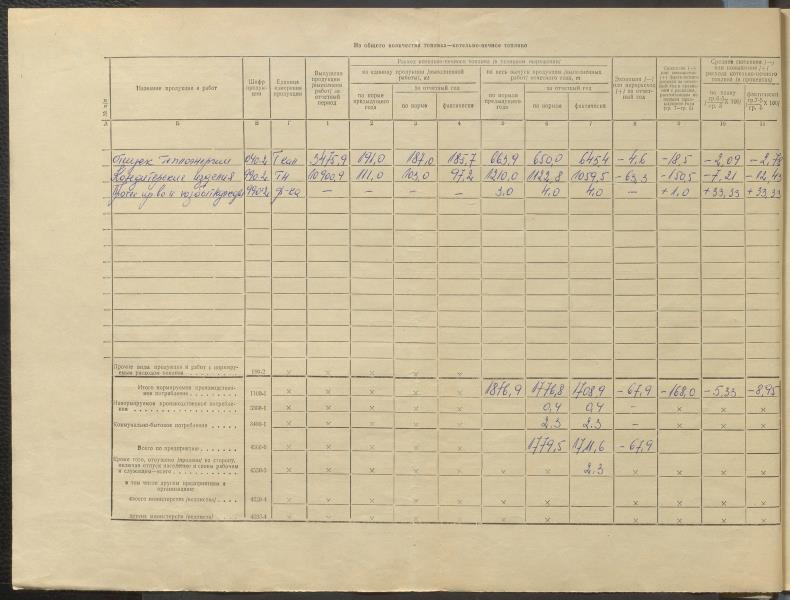 Из общего количества топлива—котельно-печное топливо
№ п/п
Название продукции и работ
Шифр продукции
Единица измерения продукции
Выпущено продукции /выполнено работ/ за отчетный период
Расход котельно-печного топлива (в условном исчислении)
на единицу продукции /выполненной работы/, кг
на весь выпуск продукции /выполненных работ/ отчетного года, т
по норме предыдущего года
за отчетный год
по норме
фактически
по нормам предыдущего года
за отчетный год
по нормам
фактически
Экономия /—/ или перерасход /+/ за отчетный год
Среднее снижение /—/ или повышение /+/ расхода котельно-печного топлива (в процентах)
по плану
фактически
А Б В Г 1 2 3 4 5 6 7 8 9 10 11
Отпуск теплоэнергии Гкал 3475,9 191,0 187,0 185,7 663,9 650,0 645,4 −4,6 −18,5 −2,09 −2,78
Кондитерские изделия 990-2 тн 10900,9 111,0 103,0 97,2 1210,0 1122,8 1059,5 −63,3 −150,5 −7,21 −12,43
990-2 — — — — 3,0 4,0 4,0 — +1,0 +33,33 +33,33
Прочие виды продукции и работ с нормируемым расходом топлива 190-2 × × × × ×
Итого нормируемое производственное потребление 1100-1 × × × × × 1876,9 1776,8 1708,9 −67,9 −168,0 −5,33 −8,95
Ненормируемое производственное потребление × × × × × 0,4 0,4 — × × ×
Коммунально-бытовое потребление × × × × × 2.3 2.3 — × × ×
Всего по предприятию × × × × × 1779,5 1711,6 −67,9
Кроме того, отпущено /продано/ на сторону, включая отпуск населению и своим рабочим и служащим—всего × × × × × × × 2.3 × × × ×
в том числе другим предприятиям и организациям:
своего министерства /ведомства/ × × × × × × × × × ×
других министерств /ведомств/ × × × × × × × × × ×